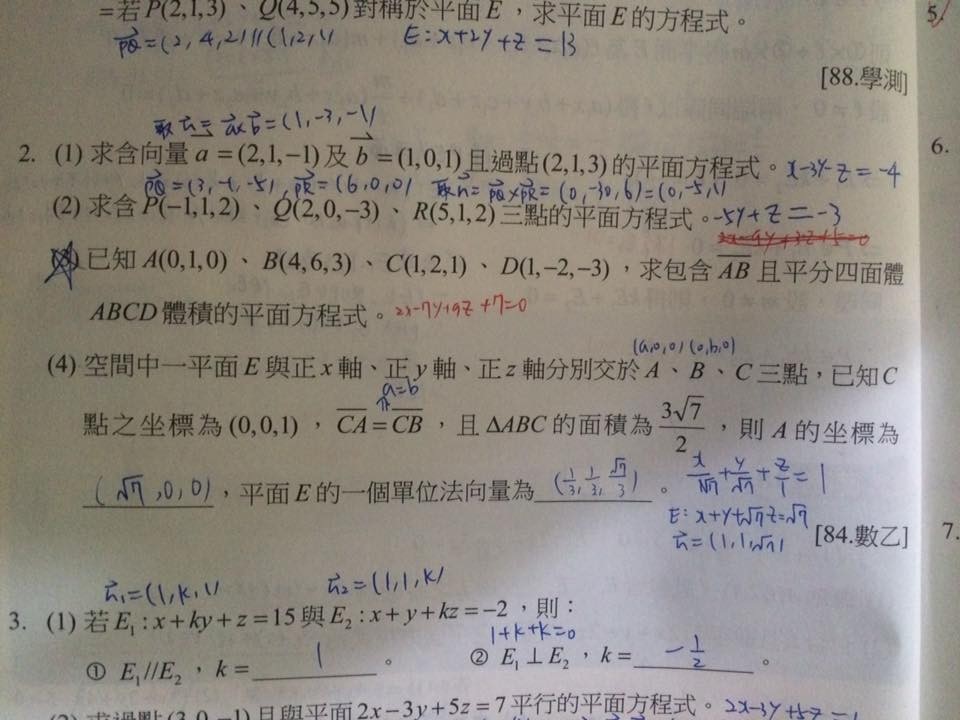 =若P(2,1,3)、Q(4,5,5)對稱於平面E，求平面E的方程式。 5
PQ=(2,4,2)//(1,2,1) E:x+2y+z=13
[88.學測]
取n=a×b=(1,-3,-1)
2. (1) 求含向量 a=(2,1,-1)及 b=(1,0,1)且過點(2,1,3)的平面方程式。x-3y-z=-4 6.
PQ=(3,-1,-5), PR=(6,0,0) 取n=PQ×PR=(0,-30,6)=(0,-5,1)
(2) 求含P(-1,1,2)、Q(2,0,-3)、R(5,1,2)三點的平面方程式。-5y+z=-3
(3) 已知 A(0,1,0)、B(4,6,3)、C(1,2,1)、D(1,-2,-3)，求包含AB且平分四面體
ABCD體積的平面方程式。2x-7y+9z+7=0
(a,0,0) (0,b,0)
(4) 空間中一平面E與正x軸、正y軸、正z軸分別交於A、B、C三點，已知C
a=b
點之坐標為(0,0,1)，CA=CB，且ΔABC的面積為3√7/2，則A的坐標為
(√7,0,0)，平面E的一個單位法向量為(1/3,1/3,√7/3)。 x/√7+y/√7+z/1=1
E:x+y+√7z=√7
n=(1,1,√7) [84.數乙] 7.
n₁=(1,k,1) n₂=(1,1,k)
3. (1) 若E₁:x+ky+z=15與E₂:x+y+kz=-2，則：
1+k+k=0
① E₁//E₂，k=1。 ② E₁⊥E₂，k=-1/2。
(2) 求過點(3,0,-1)且與平面2x-3y+5z=7平行的平面方程式。2x-3y+5z=1